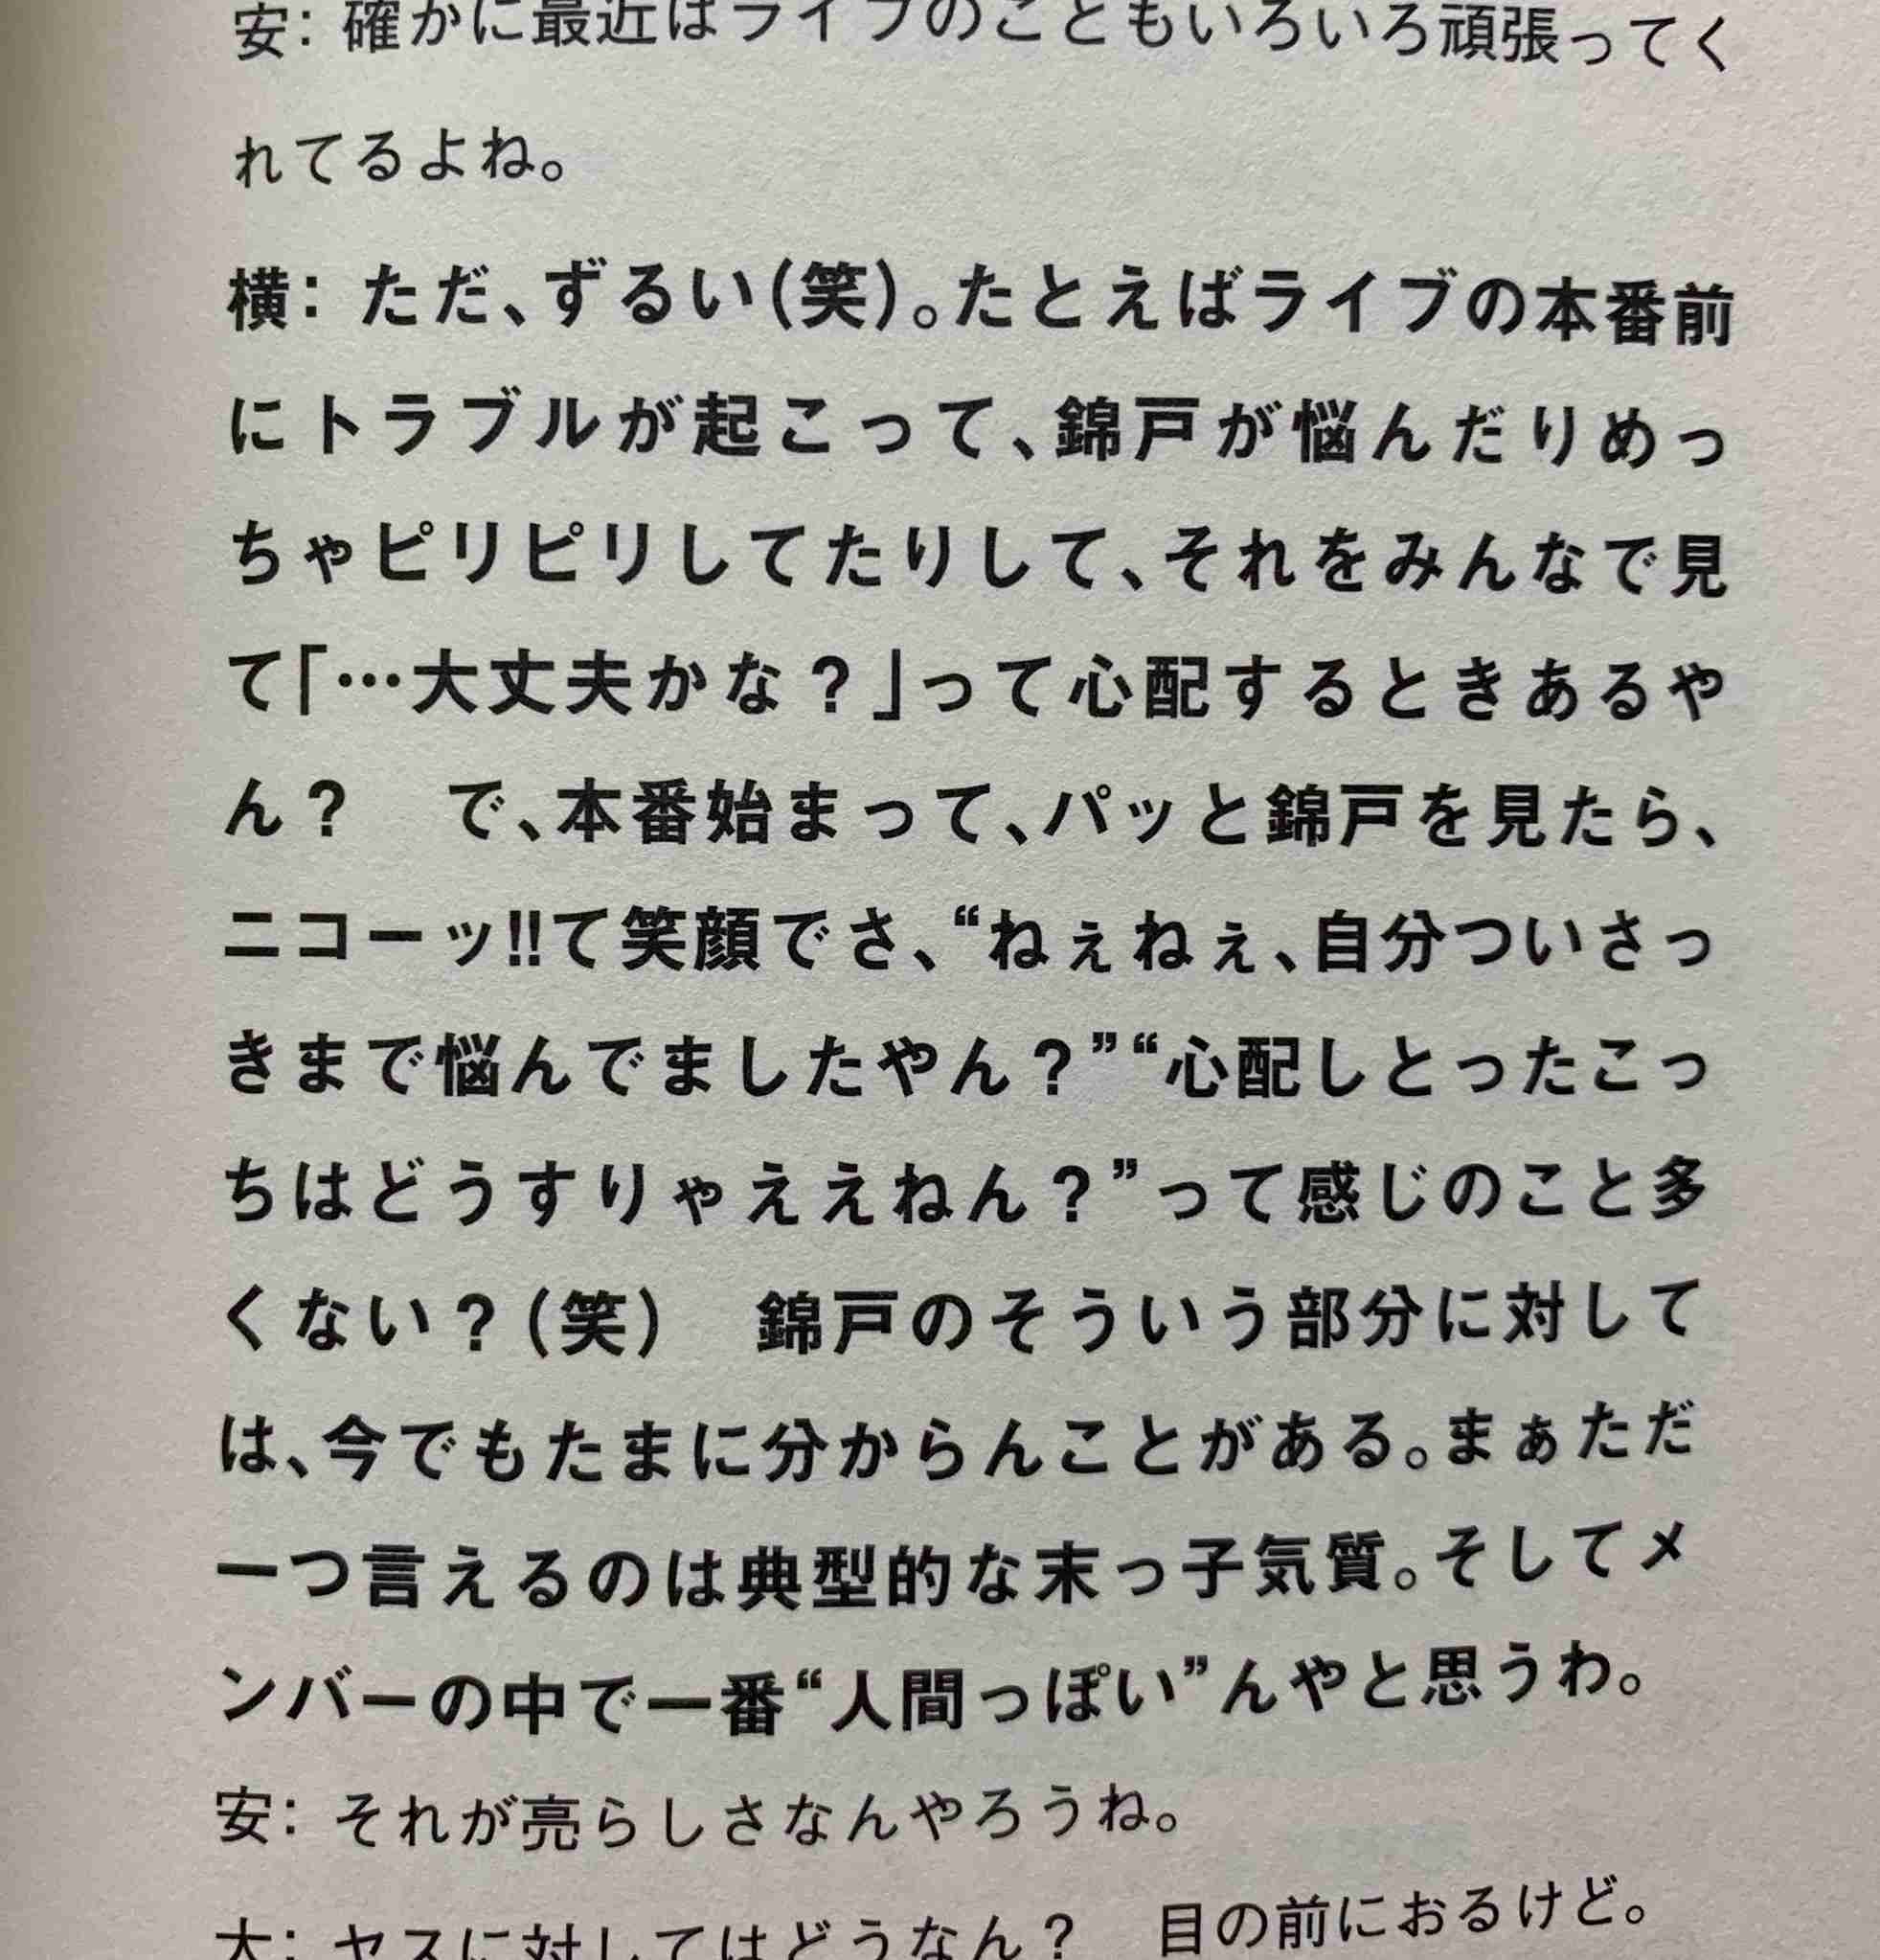 安：確かに最近はライブのこともいろいろ頑張ってく
れてるよね。
横：ただ、ずるい（笑）。たとえばライブの本番前
にトラブルが起こって、錦戸が悩んだりめっ
ちゃピリピリしてたりして、それをみんなで見
て「…大丈夫かな？」って心配するときあるや
ん？　で、本番始まって、パッと錦戸を見たら、
ニコーッ!!て笑顔でさ、“ねぇねぇ、自分ついさっ
きまで悩んでましたやん？”“心配しとったこっ
ちはどうすりゃええねん？”って感じのこと多
くない？（笑）　錦戸のそういう部分に対して
は、今でもたまに分からんことがある。まぁただ
一つ言えるのは典型的な末っ子気質。そしてメ
ンバーの中で一番“人間っぽい”んやと思うわ。
安：それが亮らしさなんやろうね。
大：ヤスに対してはどうなん？　目の前におるけど。